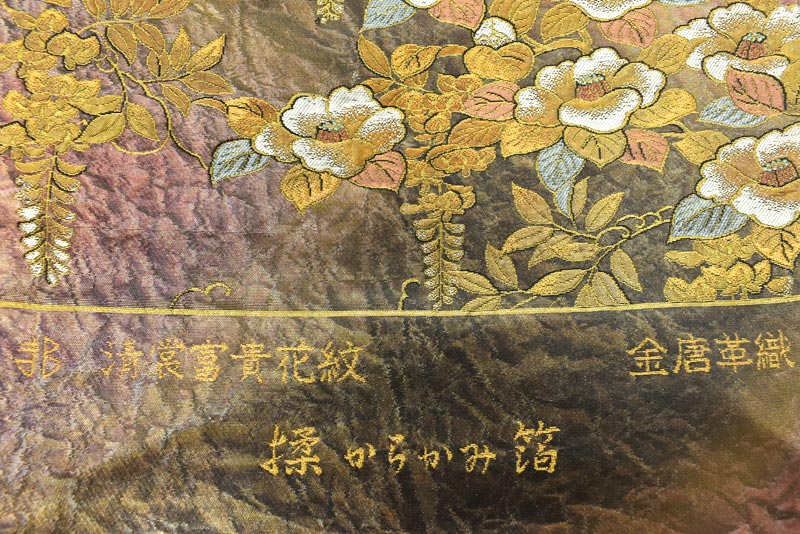 清裳富貴花紋 金唐革織
揉からかみ箔